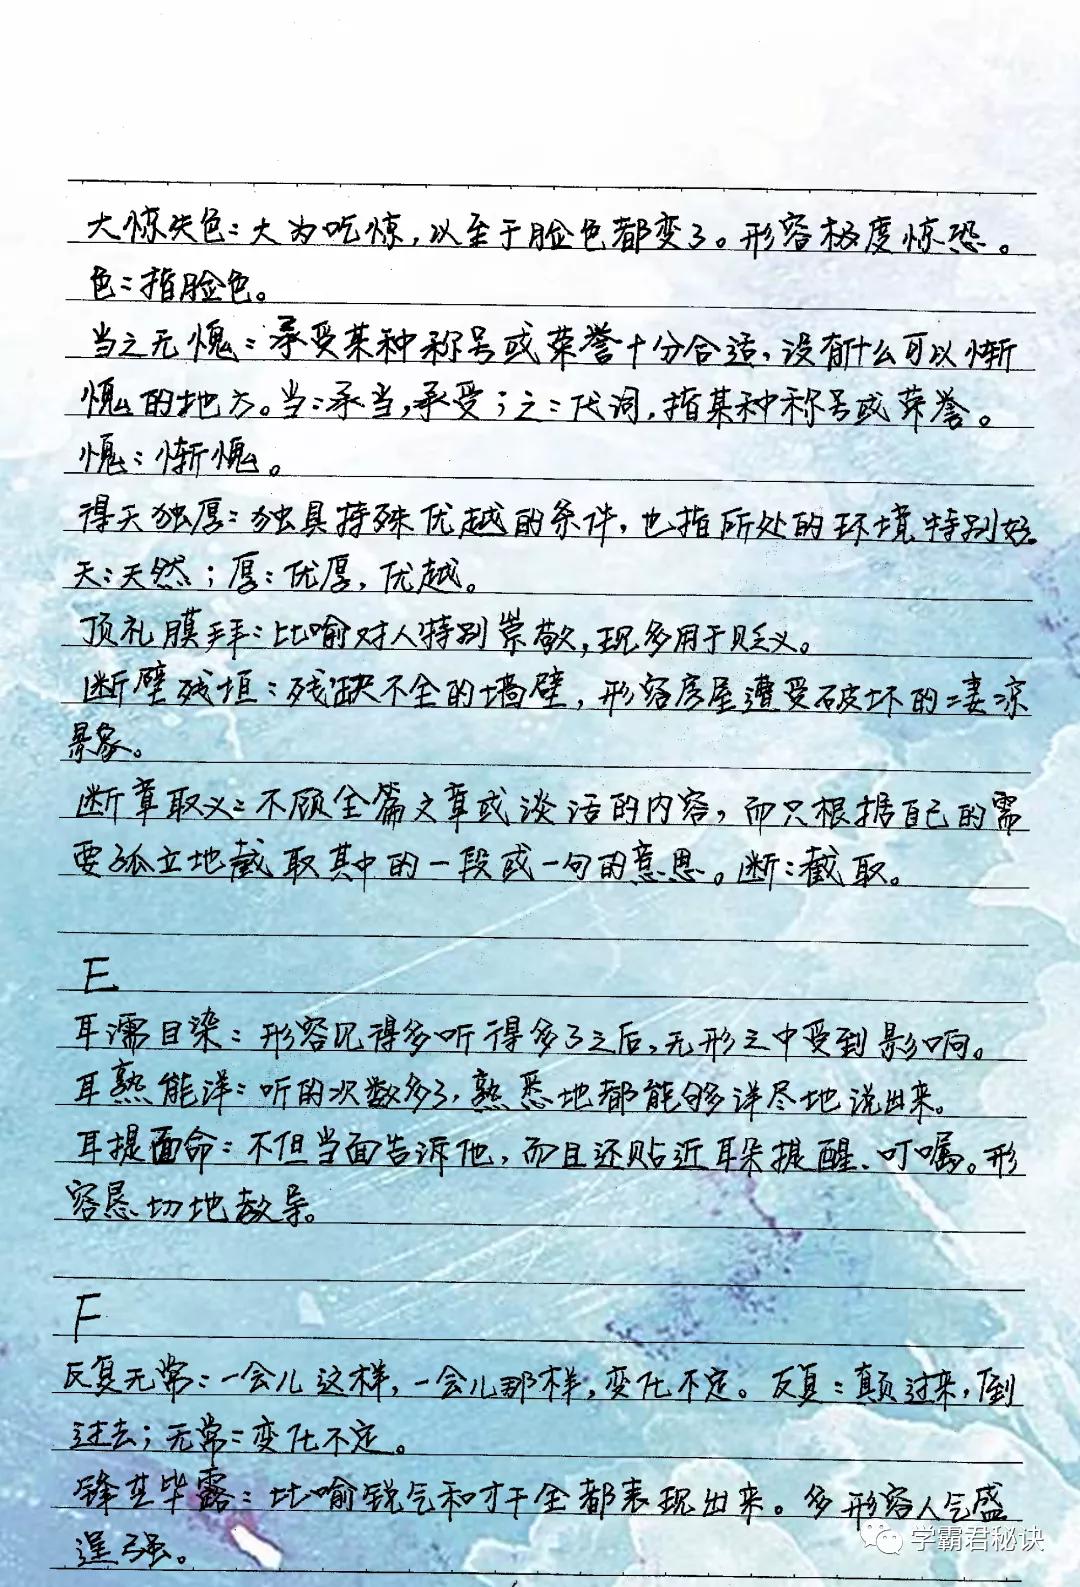 大惊失色：大为吃惊，以至于脸色都变了。形容极度惊恐。
色：指脸色。
当之无愧：承受某种称号或荣誉十分合适，没有什么可以惭
愧的地方。当：承当，承受；之：代词，指某种称号或荣誉。
愧：惭愧。
得天独厚：独具特殊优越的条件，也指所处的环境特别好。
天：天然；厚：优厚，优越。
顶礼膜拜：比喻对人特别崇敬，现多用于贬义。
断壁残垣：残缺不全的墙壁，形容房屋遭受破坏的凄凉
景象。
断章取义：不顾全篇文章或谈话的内容，而只根据自己的需
要孤立地截取其中的一段或一句的意思。断：截取。
E
耳濡目染：形容见得多听得多了之后，无形之中受到影响。
耳熟能详：听的次数多了，熟悉地都能够详尽地说出来。
耳提面命：不但当面告诉他，而且还贴近耳朵提醒、叮嘱。形
容恳切地教导。
F
反复无常：一会儿这样，一会儿那样，变化不定。反复：颠过来，倒
过去；无常：变化不定。
锋芒毕露：比喻锐气和才干全都表现出来。多形容人气盛
逞强。
学霸君秘诀